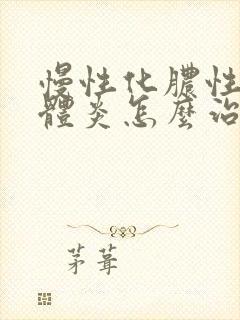 慢性化膿性
體炎怎麼治
茅葺